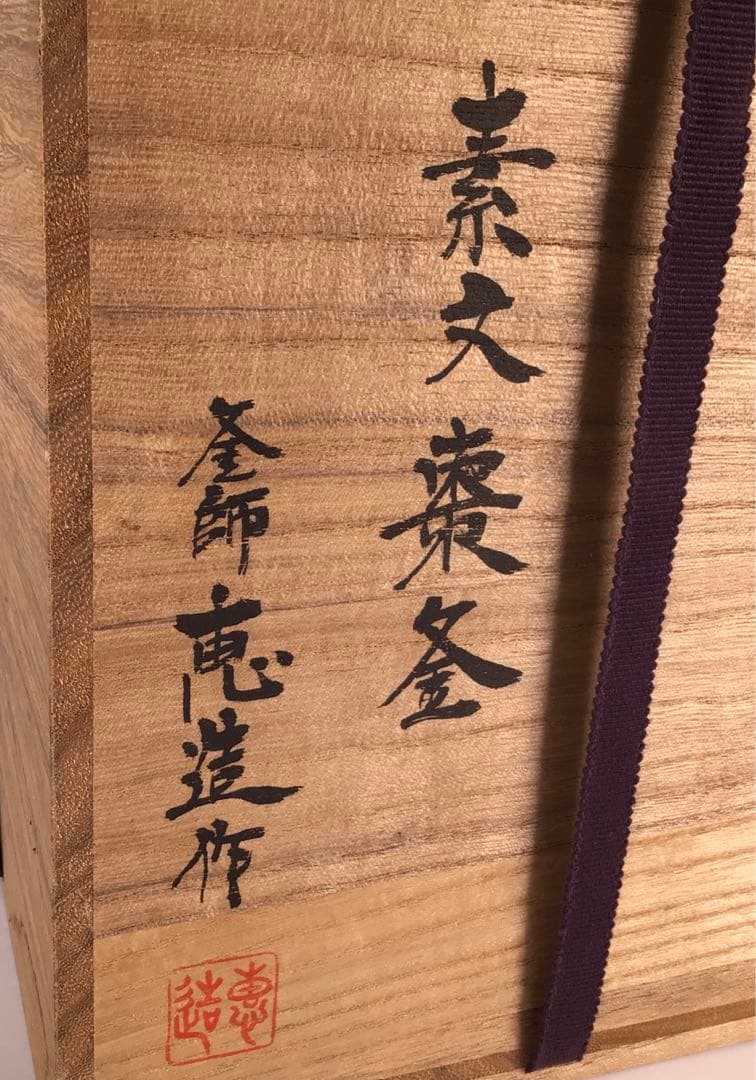 素文棗釜
釜師恵造作
惠造